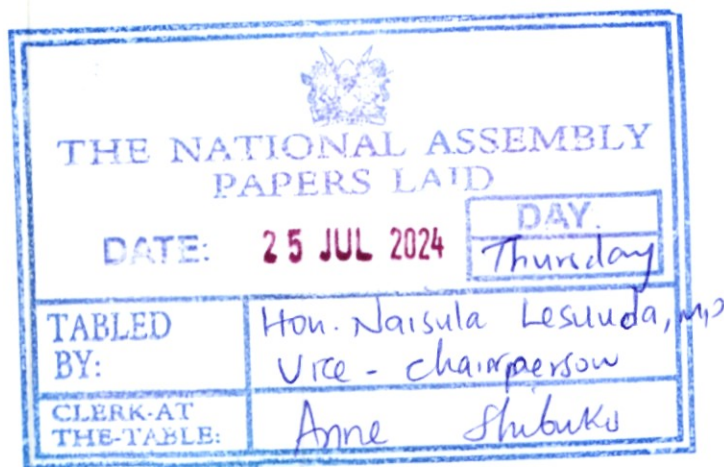 THE NATIONAL ASSEMBLY
PAPERS LAID
DATE: 25 JUL 2024 DAY.
Thursday
TABLED BY: Hon. Naisula Lesuuda, MP
Vice - chairperson
CLERK-AT THE-TABLE: Anne Shibuko